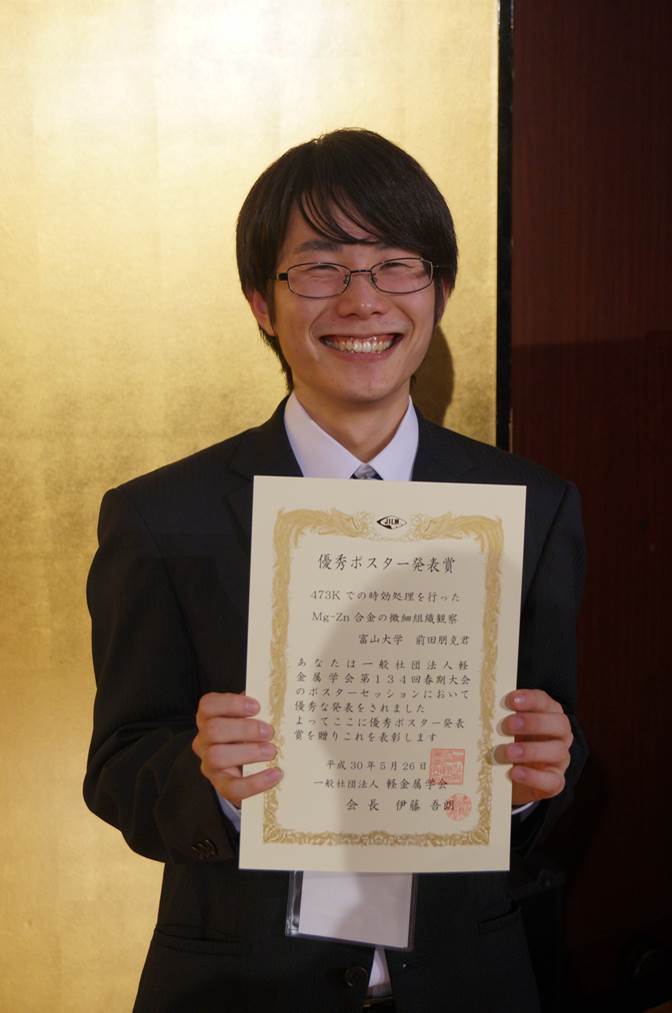 JILM
優秀ポスター発表賞
473Kでの時効処理を行った
Mg-Zn合金の微細組織観察
富山大学 前田朋克君
あなたは一般社団法人軽
金属学会第134回春期大会
のポスターセッションにおいて
優秀な発表をされました
よってここに優秀ポスター発表
賞を贈りこれを表彰します
平成30年5月26日
一般社団法人 軽金属学会
会長 伊藤吾朗